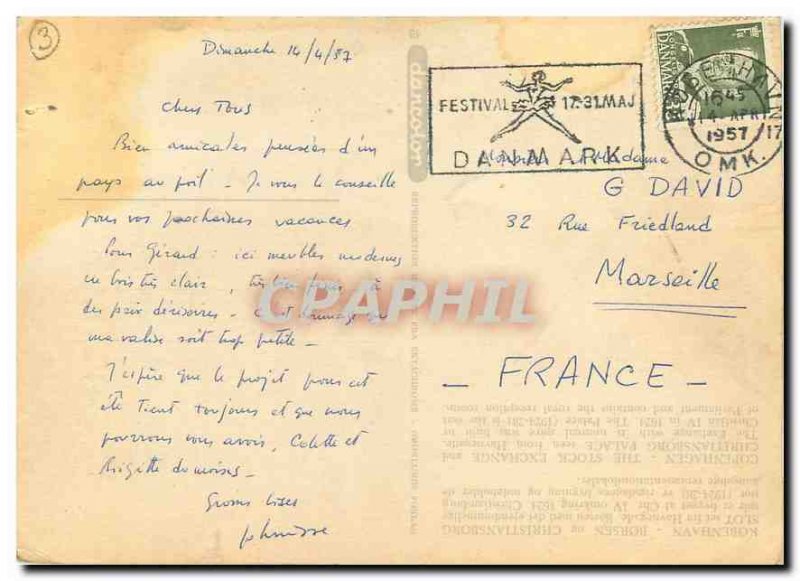 3
Dimanche 14/4/57
Chers Tous
Bien amicales pensées d'un
pays au poil - Je vous le conseille
pour vos prochaines vacances
Pour Gérard : ici meubles modernes
en bois très clair, très bon, à
des prix dérisoires - dommage que
ma valise soit trop petite -
J'espère que le projet pour cet
été tient toujours et que nous
pourrons vous avoir, Colette et
Brigitte du moins -
Grosses bises
dancolor
FESTIVAL 17.-31. MAJ
DANMARK
DANMARK
KØBENHAVN
1645
14. APRIL
1957
17
OMK.
Monsieur Madame
G DAVID
32 Rue Friedland
Marseille
- FRANCE -
CPAPHIL
KØBENHAVN - BØRSEN og CHRISTIANSBORG
SLOT set fra Havnegade. Børsen med det ejendommelige
spir er bygget af Chr. IV omkring 1624. Christiansborg
COPENHAGEN - THE STOCK EXCHANGE and
CHRISTIANSBORG PALACE seen from Havnegade.
The Exchange with its unusual spire was built by
Christian IV in 1624. The Palace (1924-28) is the seat
of Parliament and contains the royal reception rooms.